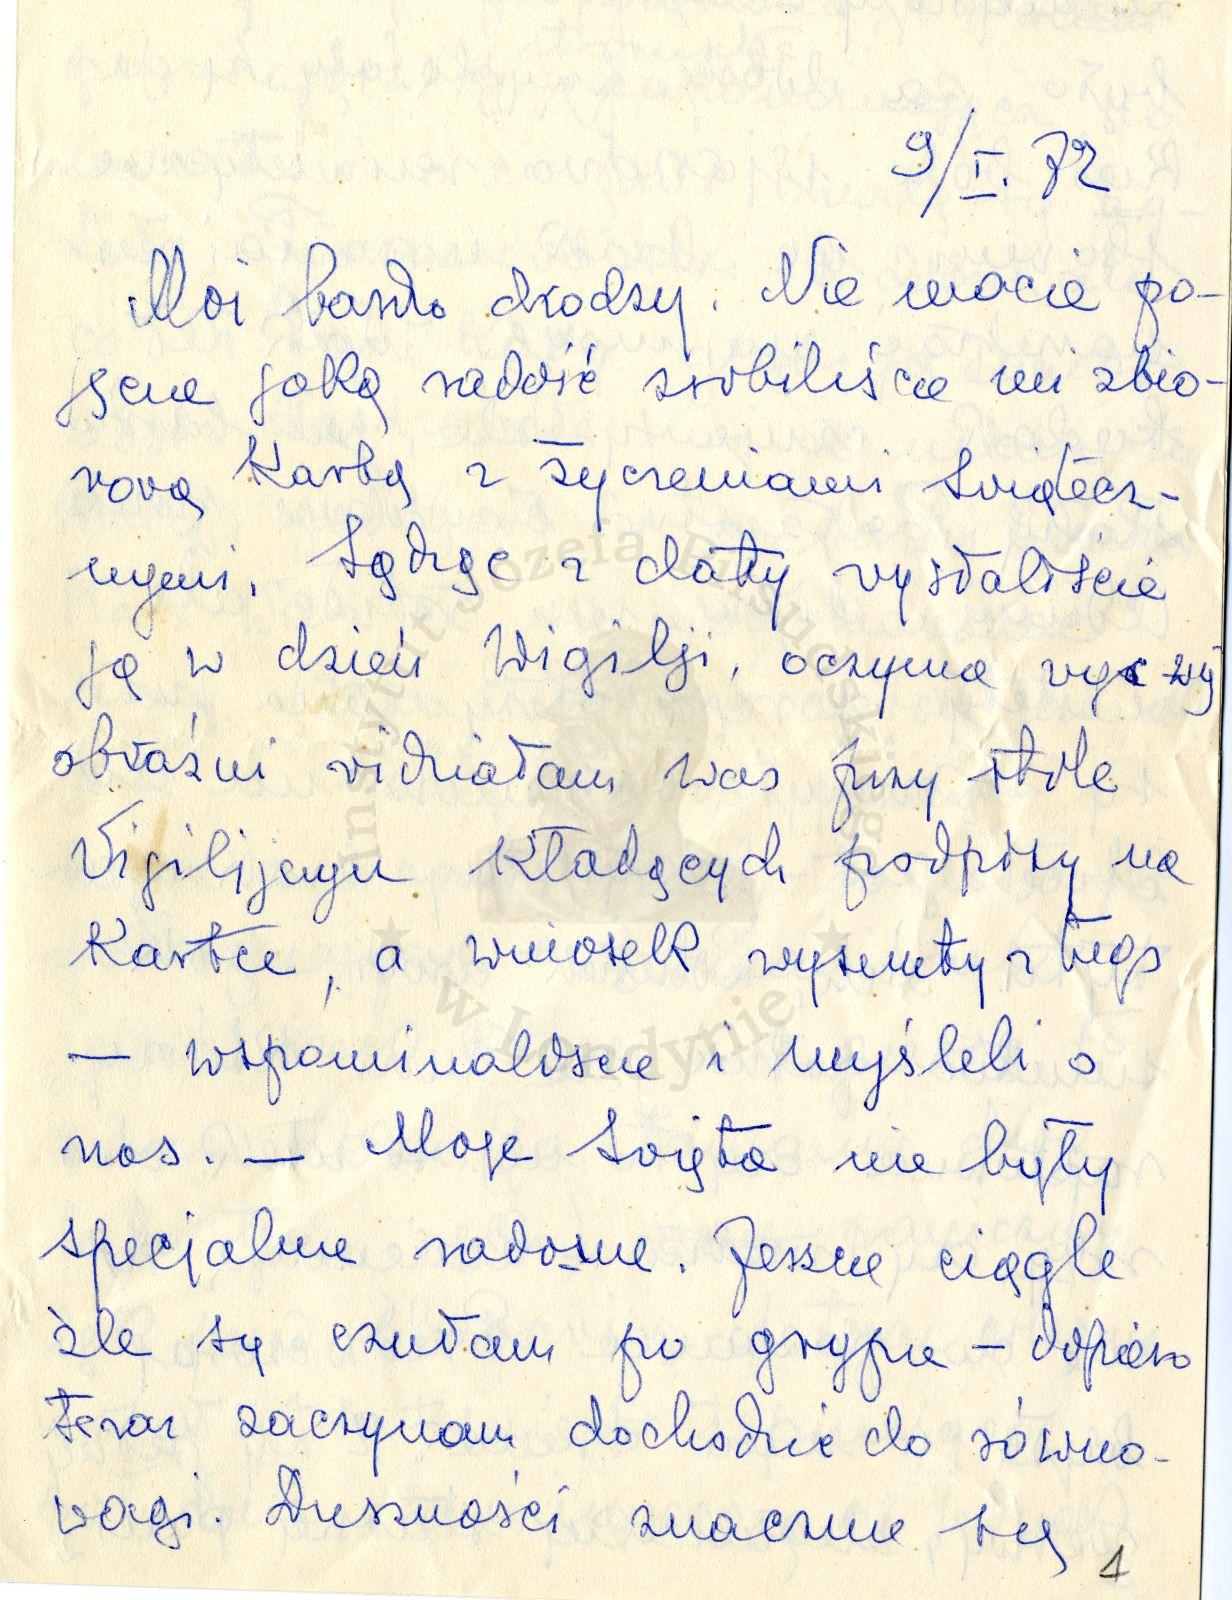 9/I. 72
Moi bardo drodzy. Nie macie po-
jęcia jaką radość zrobiliście mi zbio-
rową Kartą z życzeniami świątecz-
nymi. Sądząc z daty wysłaliście
ją w dzień Wigilji, oczyma wy
obraźni widziałam was przy stole
Vigilijnym Kładących podpisy na
Kartce, a wniosek wysnuty z tego
— wspominaliście i myśleli o
nas. — Moje święta nie były
specjalnie radosne. Jeszcze ciągle
źle się czułam po grypie – dopiero
teraz zaczynam dochodzić do równo-
wagi. Duszności znacznie
1
Instytut Józefa Piłsudskiego
w Londynie